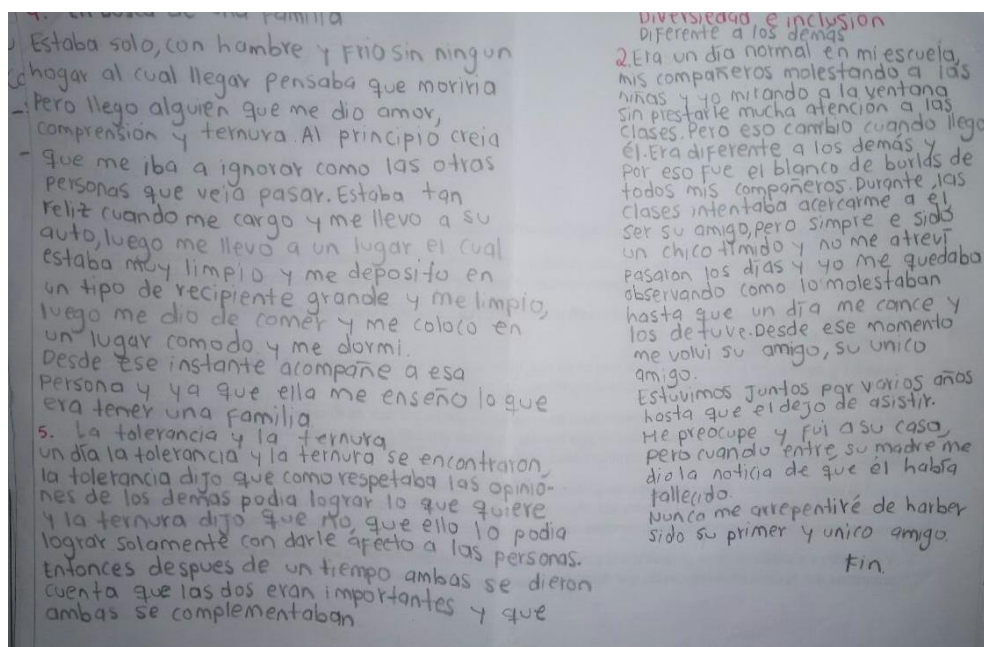 4. En busca de una Familia
Estaba solo, con hambre y Frio sin ningun
hogar al cual llegar pensaba que moriria
Pero llego alguien que me dio amor,
comprensión y ternura. Al principio creia
que me iba a ignorar como las otras
personas que veia pasar. Estaba tan
feliz cuando me cargo y me llevo a su
auto, luego me llevo a un lugar el cual
estaba muy limpio y me deposito en
un tipo de recipiente grande y me limpio,
luego me dio de comer y me coloco en
un lugar comodo y me dormi.
Desde ese instante acompañe a esa
Persona y ya que ella me enseño lo que
era tener una Familia
5. La tolerancia y la ternura
un día la tolerancia y la ternura se encontraron,
la tolerancia dijo que como respetaba las opinio-
nes de los demas podia lograr lo que quiere
y la ternura dijo que no, que ello lo podia
lograr solamente con darle afecto a las personas.
Entonces despues de un tiempo ambas se dieron
cuenta que las dos eran importantes y que
ambas se complementaban
Diversiedad e inclusión
Diferente a los demás
2. Era un día normal en mi escruela,
mis compañeros molestando a las
niñas y yo mirando a la ventana
sin prestarle mucha atención a las
clases. Pero eso cambio cuando llego
él. Era diferente a los demás y
por eso fue el blanco de burlas de
todos mis compañeros. Durante las
clases intentaba acercarme a el
ser su amigo, pero simpre e sido
un chico timido y no me atreví
pasaron los días y yo me quedaba
observando como lo molestaban
hasta que un día me cance y
los detuve. Desde ese momento
me volvi su amigo, su unico
amigo.
Estuvimos Juntos por varios años
hasta que el dejo de asistir.
Me preocupe y fui a su casa,
pero cuando entre su madre me
dio la noticia de que él había
fallecido.
Nunca me arrepentiré de harber
sido su primer y unico amigo.
Fin.